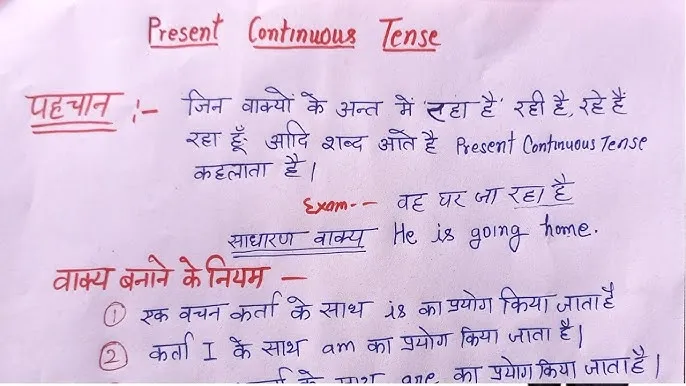 Present Continuous Tense
पहचान :- जिन वाक्यों के अन्त में रहा है रही है, रहे हैं
रहा हूँ आदि शब्द आते है Present Continuous Tense
कहलाता है।
Exam-- वह घर जा रहा है
साधारण वाक्य He is going home.
वाक्य बनाने के नियम —
① एक वचन कर्ता के साथ is का प्रयोग किया जाता है
② कर्ता I के साथ am का प्रयोग किया जाता है।
के साथ are का प्रयोग किया जाता है।